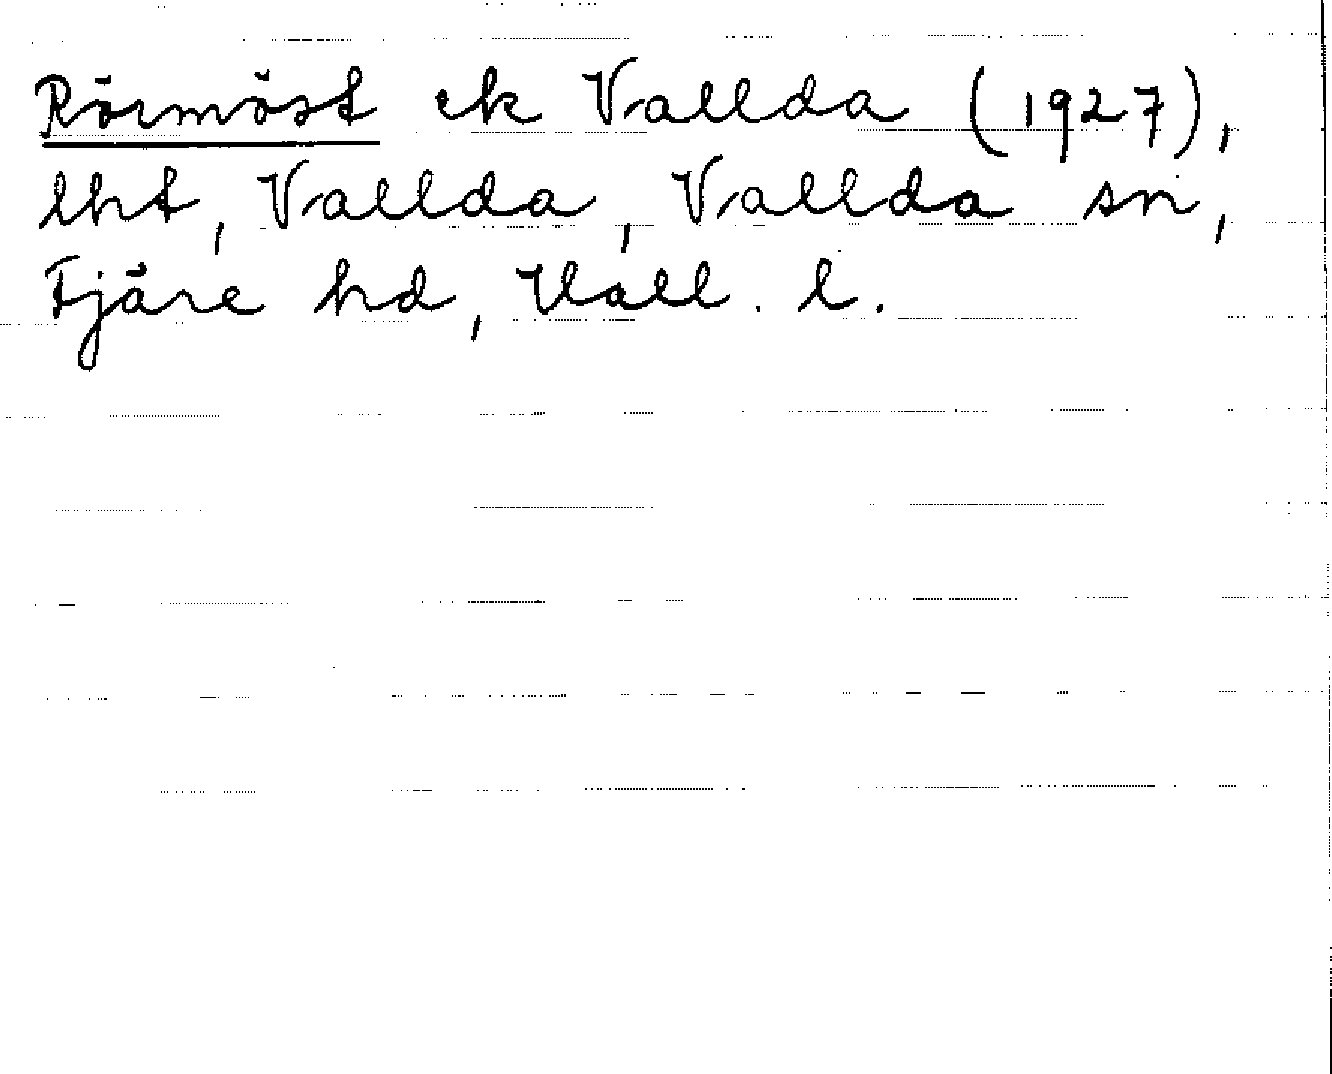 Rörmöst ek Vallda (1927),
lht, Vallda, Vallda sn,
Fjäre hd, Hall. l.